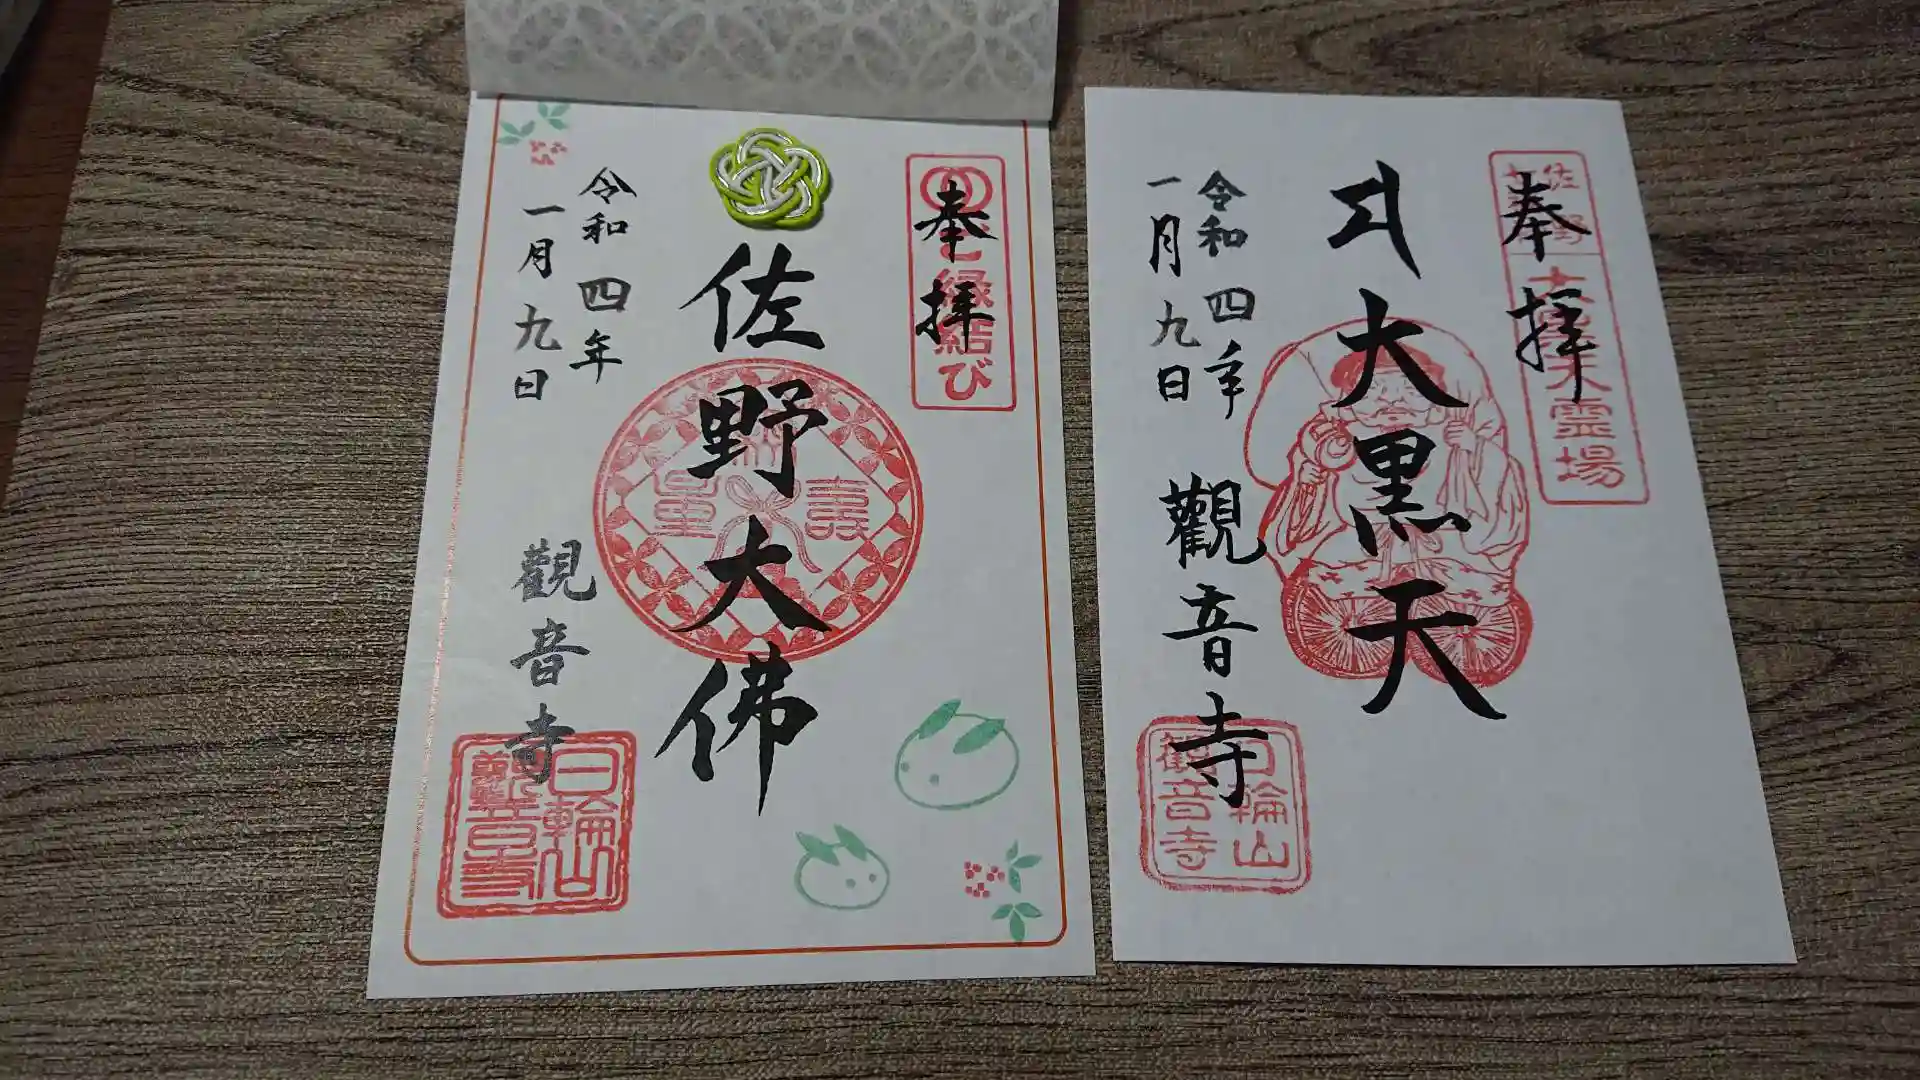 奉拝
縁結び
佐野大佛
無量壽
令和四年
一月九日
觀音寺
日輪山
觀音寺
奉拝
佐野
霊場
大黒天
令和四年
一月九日
觀音寺
日輪山
観音寺